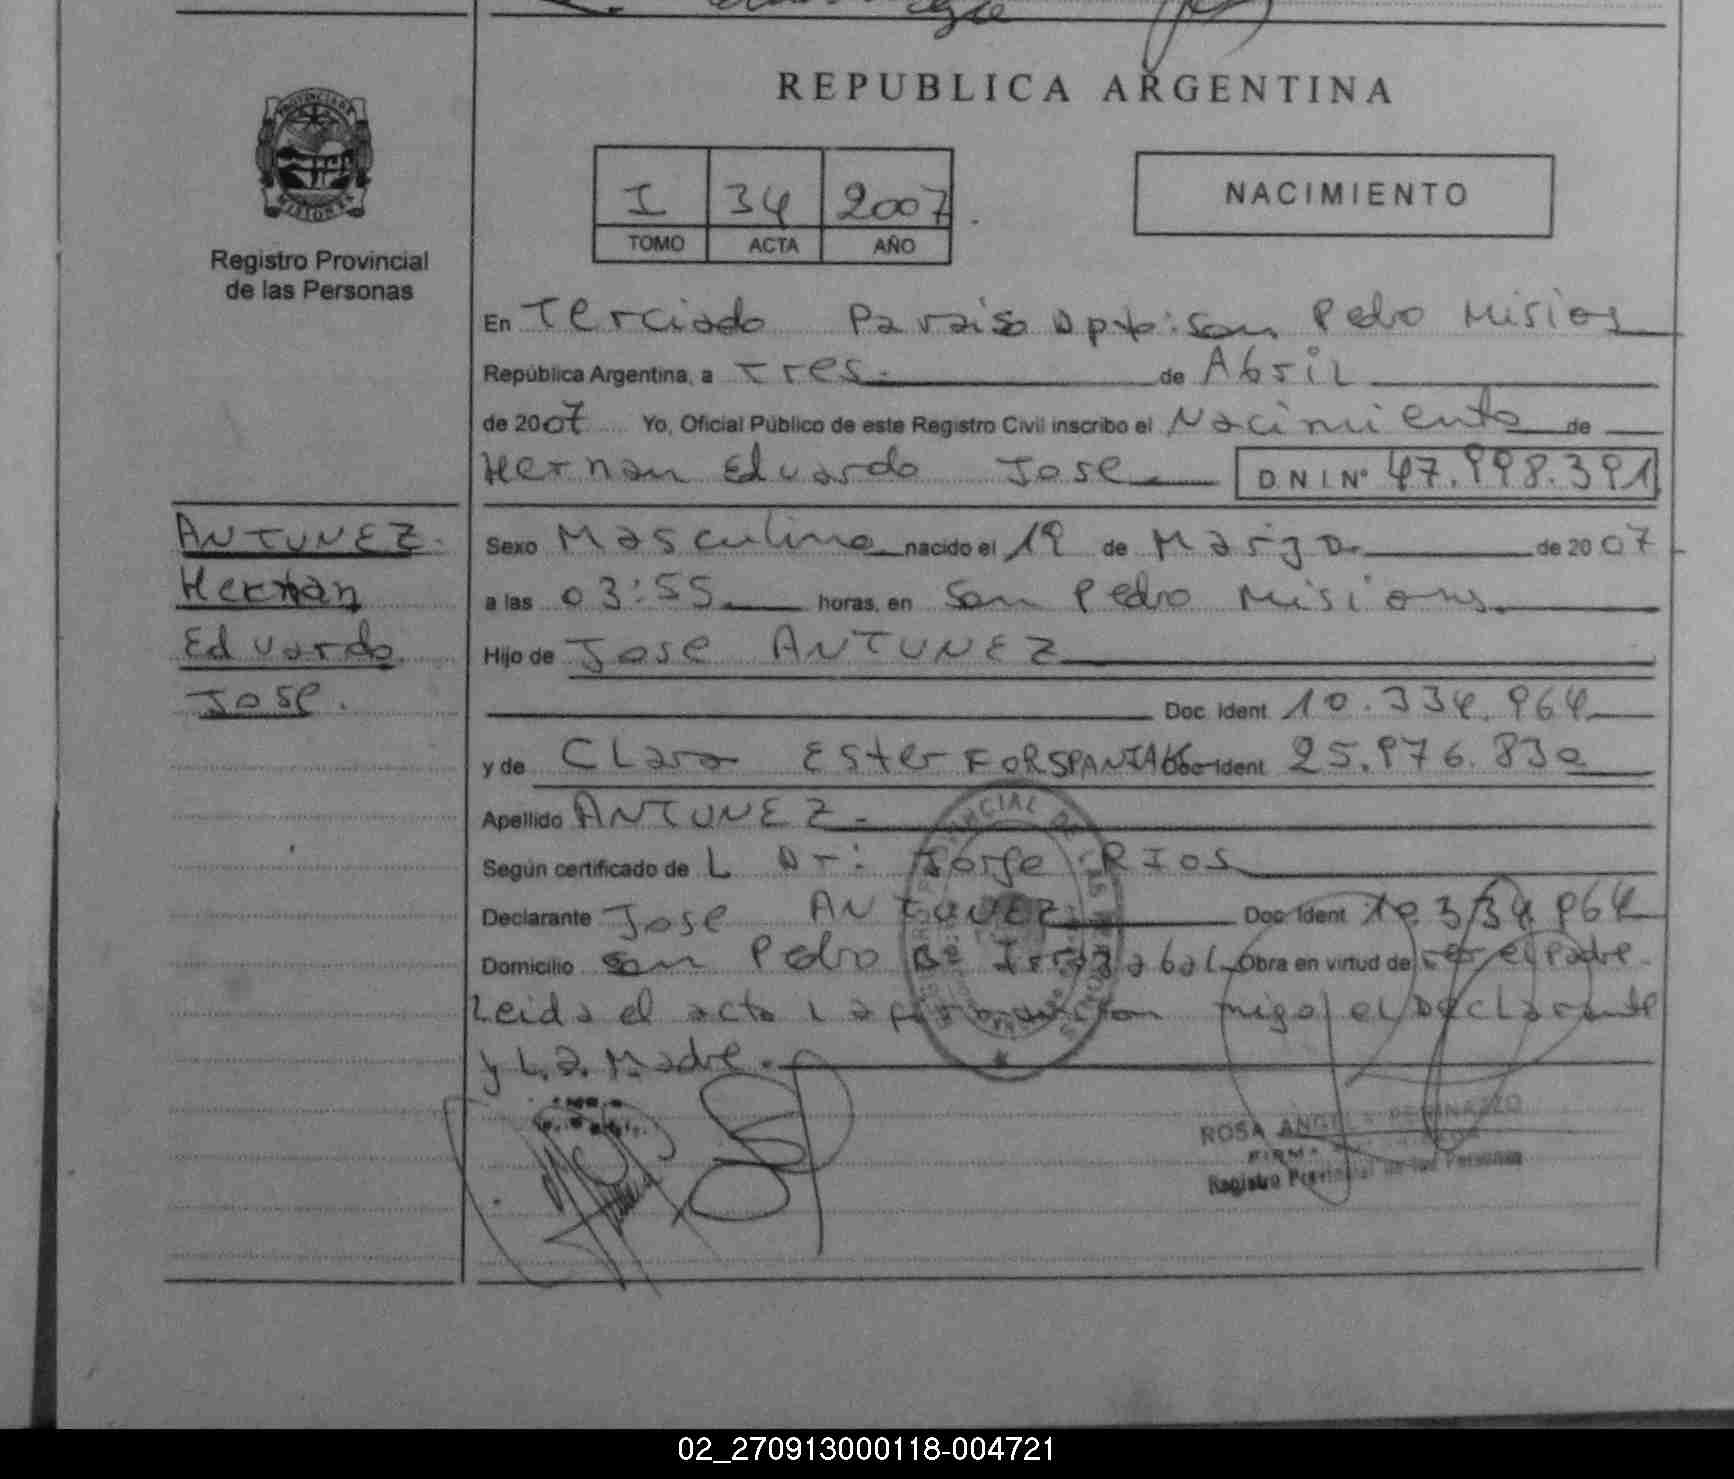 REPUBLICA ARGENTINA
I 34 2007
TOMO ACTA AÑO
NACIMIENTO
PROVINCIA DE
MISIONES
Registro Provincial
de las Personas
En Terciado Paraiso Dpto: San Pedro Misiones
República Argentina, a Tres. de Abril
de 2007 Yo, Oficial Público de este Registro Civil inscribo el Nacimiento de
Hernan Eduardo Jose D N I Nº 47.998.391
ANTUNEZ.
Hernan
Eduardo
Jose.
Sexo Masculino nacido el 19 de Marzo de 2007
a las 03:55 horas, en San Pedro Misiones.
Hijo de Jose ANTUNEZ
Doc. Ident. 10.334.964
y de Clara Ester Doc. Ident. 25.976.830
Apellido ANTUNEZ.
Según certificado de L Dr: Jorge RIOS
Declarante Jose ANTUNEZ Doc. Ident. 10.334.964
Domicilio San Pedro Bº Irrazabal Obra en virtud de ser el Padre.
Leida el acta la firman con migo el Declarante
y L.a. Madre.
ROSA ANGELA
FIRMA
Registro Provincial de las Personas
02_270913000118-004721